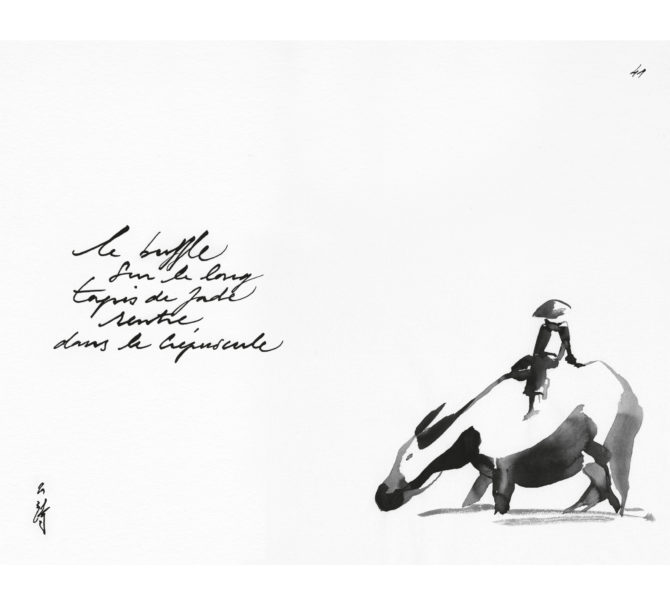 41
le buffle
sur le long
tapis de jade
rentre
dans le crépuscule